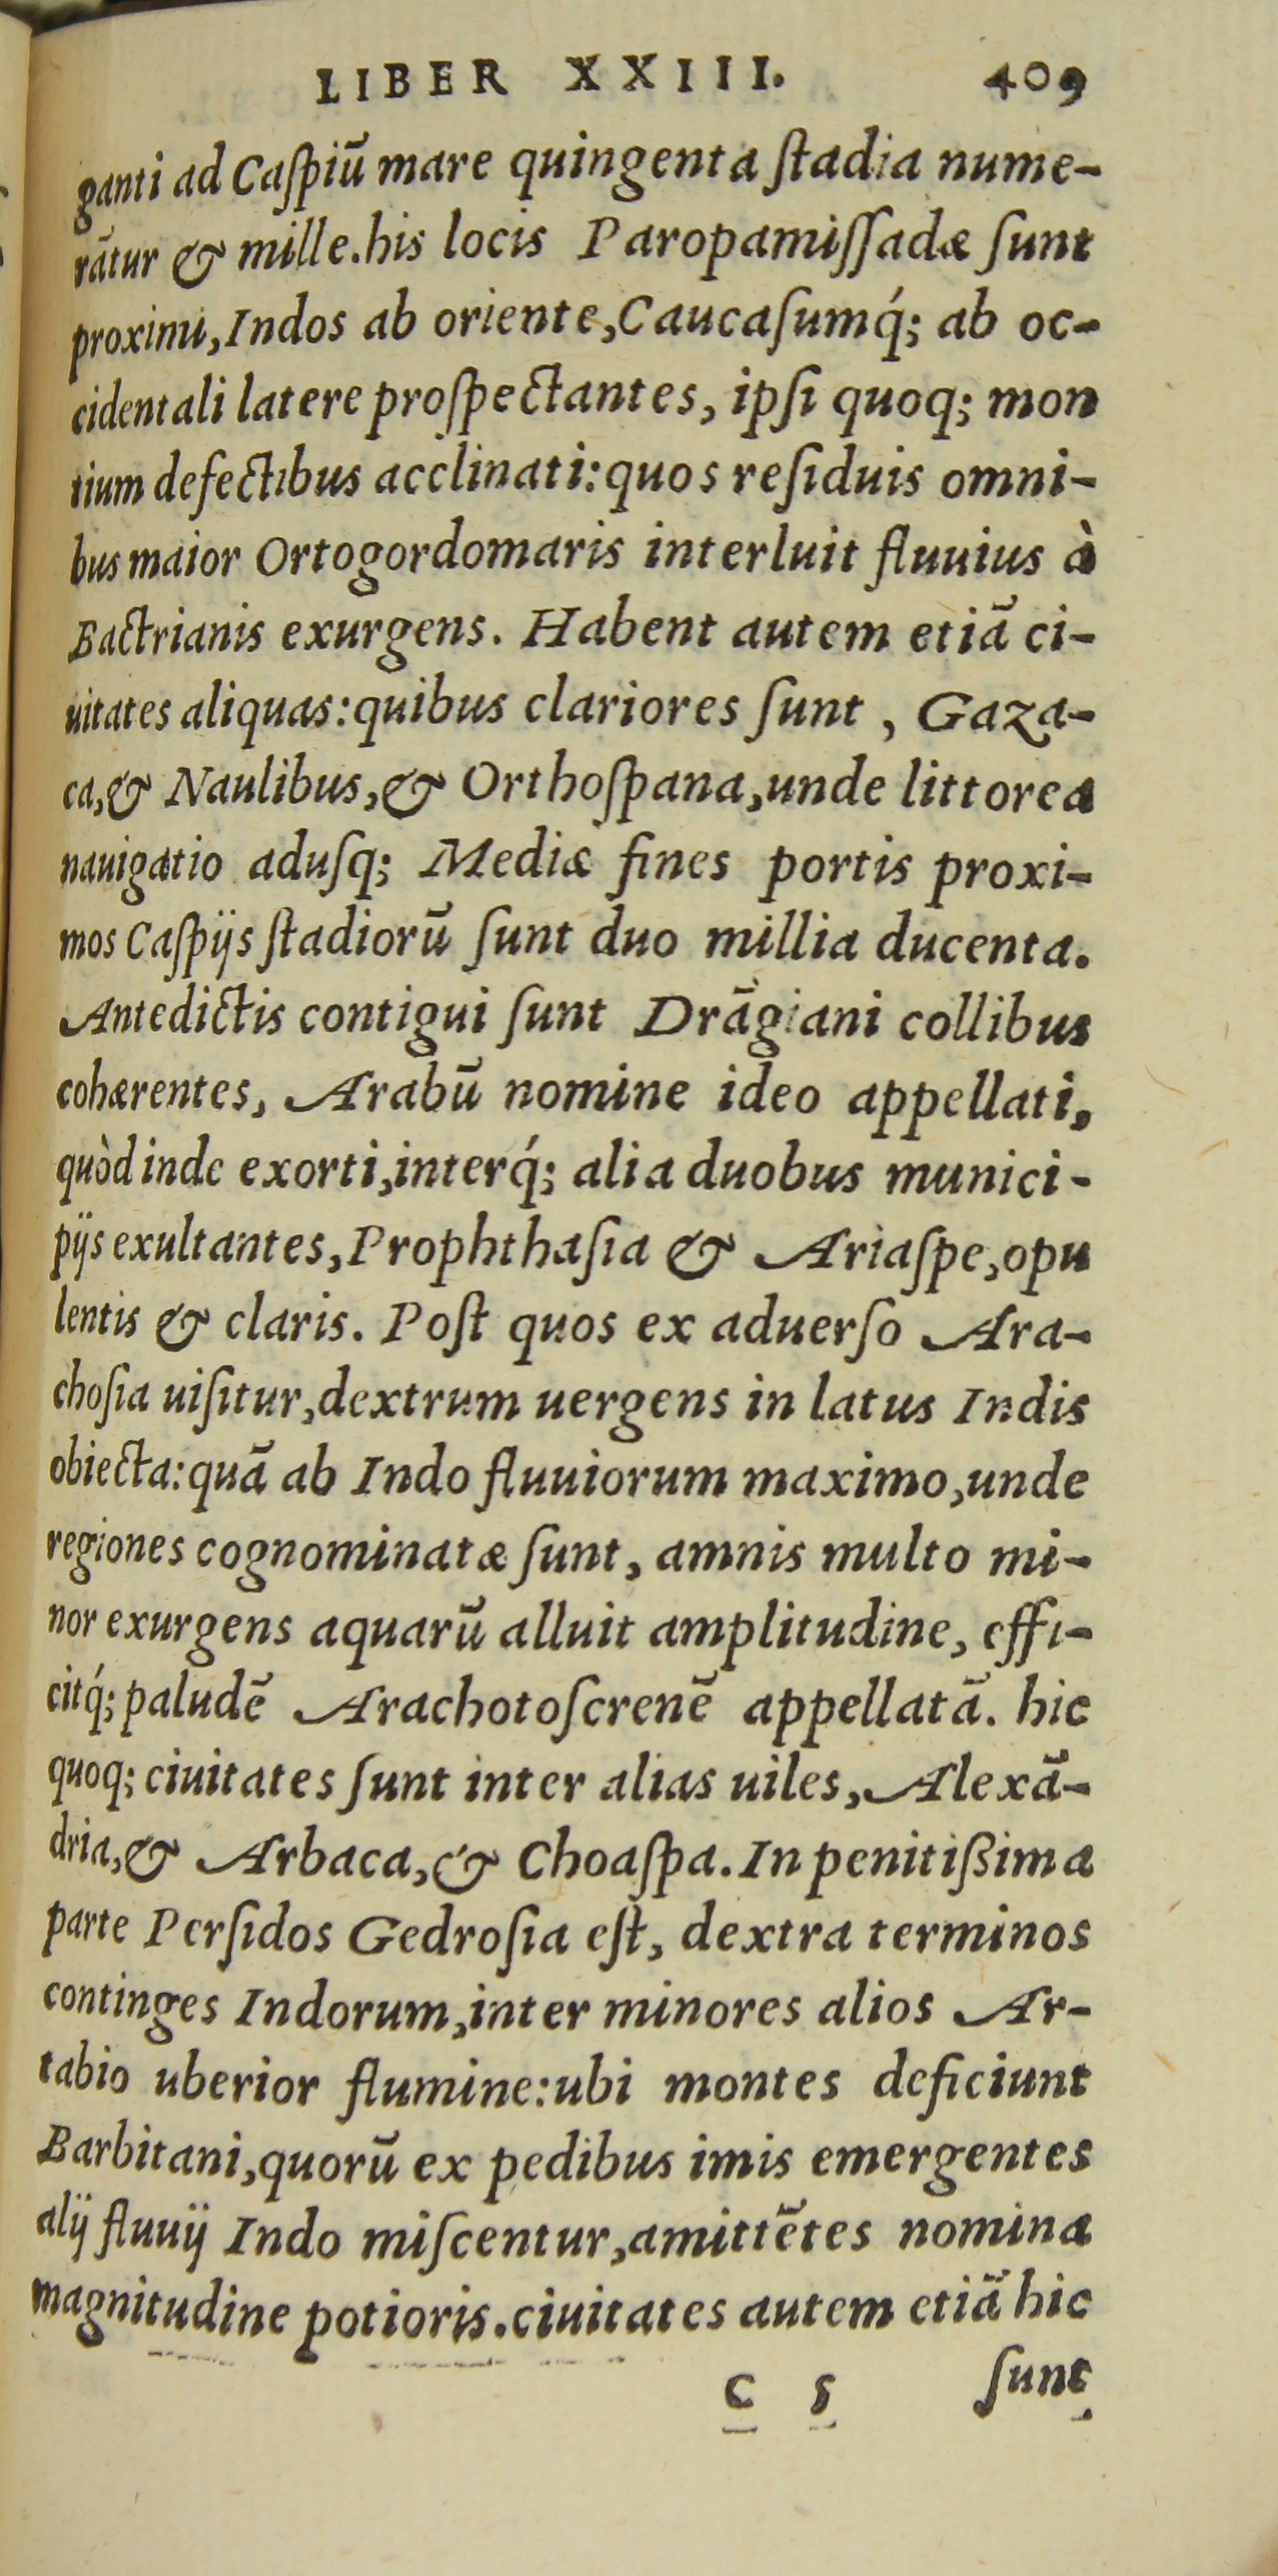 LIBER XXIII. 409
ganti ad Caſpiū mare quingenta ſtadia nume-
rātur & mille.his locis Paropamiſſadæ ſunt
proximi,Indos ab oriente,Caucaſumq́; ab oc-
cidentali latere proſpectantes, ipſi quoq; mon
tium defectibus acclinati:quos reſiduis omni-
bus maior Ortogordomaris interluit fluuius à
Bactrianis exurgens. Habent autem etiā ci-
uitates aliquas:quibus clariores ſunt, Gaza-
ca,& Naulibus,& Orthoſpana,unde littorea
nauigatio aduſq; Mediæ fines portis proxi-
mos Caſpijs ſtadiorū ſunt duo millia ducenta.
Antedictis contigui ſunt Drāgiani collibus
cohærentes, Arabū nomine ideo appellati,
quòd inde exorti,interq́; alia duobus munici-
pijs exultantes,Prophthaſia & Ariaſpe,opu
lentis & claris. Poſt quos ex aduerſo Ara-
choſia uiſitur,dextrum uergens in latus Indis
obiecta:quā ab Indo fluuiorum maximo,unde
regiones cognominatæ ſunt, amnis multo mi-
nor exurgens aquarū alluit amplitudine, effi-
citq́; paludē Arachotoſcrenē appellatā. hic
quoq; ciuitates ſunt inter alias uiles,Alexā-
dria,& Arbaca,& Choaſpa.In penitißima
parte Perſidos Gedroſia eſt, dextra terminos
continges Indorum,inter minores alios Ar-
tabio uberior flumine:ubi montes deficiunt
Barbitani,quorū ex pedibus imis emergentes
alij fluuij Indo miſcentur,amittētes nomina
magnitudine potioris.ciuitates autem etiā hic
C 5 ſunt